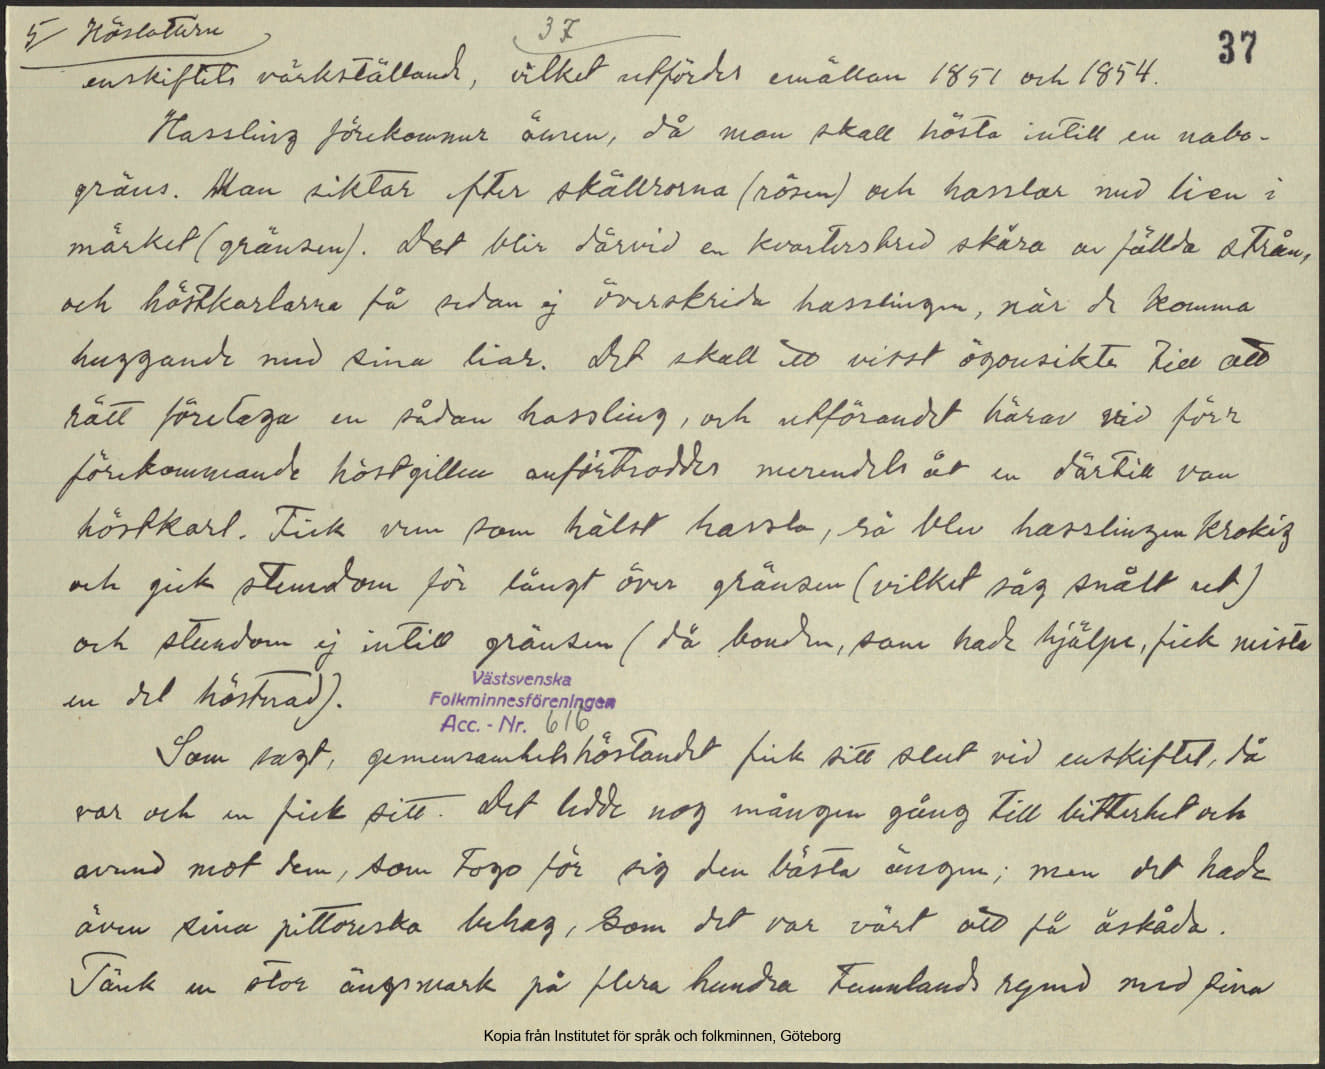 5/ Höslåttern
37
37
enskiftets värkställande, vilket utfördes emällan 1851 och 1854.
Hassling förekommer ännu, då man skall hösta intill en nabo-
gräns. Man siktar efter skällrorna (rösen) och hasslar med lien i
märket (gränsen). Det blir därvid en kvartersbred skåra av fällda strån,
och höstkarlarna få sedan ej överskrida hasslingen, när de komma
huggande med sina liar. Det skall ett visst ögonsikte till att
rätt företaga en sådan hassling, och utförandet härav vid förr
förekommande höstgillen anförtroddes merendels åt en därtill van
höstkarl. Fick vem som hälst hassla, så blev hasslingen krokig
och gick stundom för långt över gränsen (vilket såg snålt ut)
och stundom ej intill gränsen (då bonden, som hade hjälpe, fick mista
en del höstnad).
Västsvenska
Folkminnesföreningen
Acc. - Nr. 616
Som sagt, gemensamhetshöstandet fick sitt slut vid enskiftet, då
var och en fick sitt. Det ledde nog mången gång till bitterhet och
avund mot dem, som togo för sig den bästa ängen; men det hade
även sina pittoreska behag, som det var värt att få åskåda.
Tänk en stor ängsmark på flera hundra tunnlands rymd med sina
Kopia från Institutet för språk och folkminnen, Göteborg